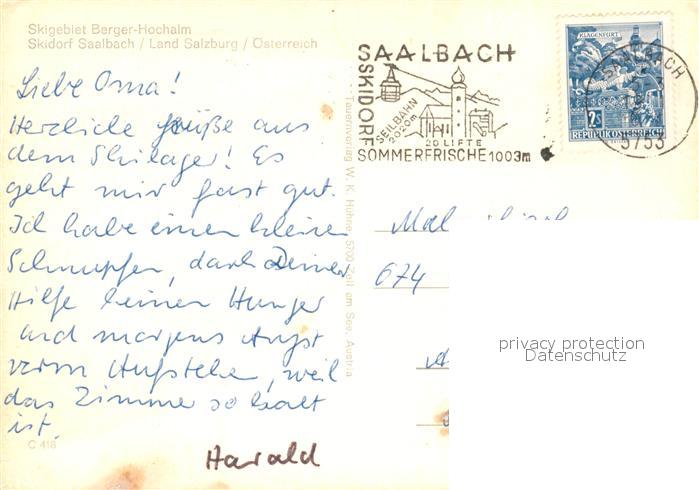 Skigebiet Berger-Hochalm
Skidorf Saalbach / Land Salzburg / Österreich
Liebe Oma!
Herzliche Grüße aus
dem Skilager! Es
geht mir fast gut.
Ich habe einen kleinen
Schnupfen, dank Deiner
Hilfe keinen Hunger
und morgens Angst
vorm Aufstehen, weil
das Zimmer so kalt
ist.
Harald
C 418
Tauernverlag W. K. Huhne, 5700 Zell am See, Austria
SAALBACH
SKIDORF
SEILBAHN
2020m
20 LIFTE
SOMMERFRISCHE 1003m
KLAGENFURT
2S
REPUBLIK ÖSTERREICH
SAALBACH
5753
674
privacy protection
Datenschutz